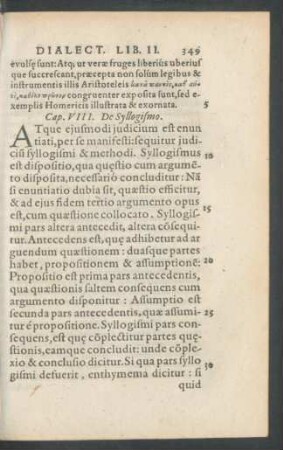 DIALECT. LIB. II. 349
evulsę sunt: Atq; ut veræ fruges liberiùs uberiusq́
que succrescant, præcepta non solùm legibus &
instrumentis illis Aristoteleis κατὰ παντὸς, καθ᾽ αὑτὸ,
καθόλου πρῶτον congruenter exposita sunt, sed e-
xemplis Homericis illustrata & exornata. 5
Cap. VIII. De Syllogismo.
ATque ejusmodi judicium est enun
tiati, per se manifesti: sequitur judi-
cium syllogismi & methodi. Syllogismus 10
est dispositio, qua quęstio cum argumē-
to disposita, necessariò concluditur: Nā
si enuntiatio dubia sit, quæstio efficitur,
& ad ejus fidem tertio argumento opus
est, cum quæstione collocato. Syllogis- 15
mi pars altera antecedit, altera cōsequi-
tur. Antecedens est, quę adhibetur ad ar
guendum quæstionem: duasque partes
habet, propositionem & assumptionē.
Propositio est prima pars antecedentis, 20
qua quæstionis saltem consequens cum
argumento disponitur: Assumptio est
secunda pars antecedentis, quæ assumi-
tur é propositione. Syllogismi pars con-
sequens, est quę cōplectitur partes quę- 25
stionis, eamque concludit: unde cōple-
xio & conclusio dicitur. Si qua pars syllo
gismi defuerit, enthymema dicitur: si 30
quid